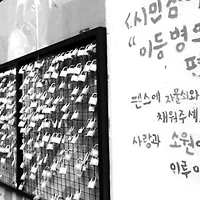 <시민참
"이등병의
펜스에 자물쇠와
채워주세
사랑과 소원이
이루어